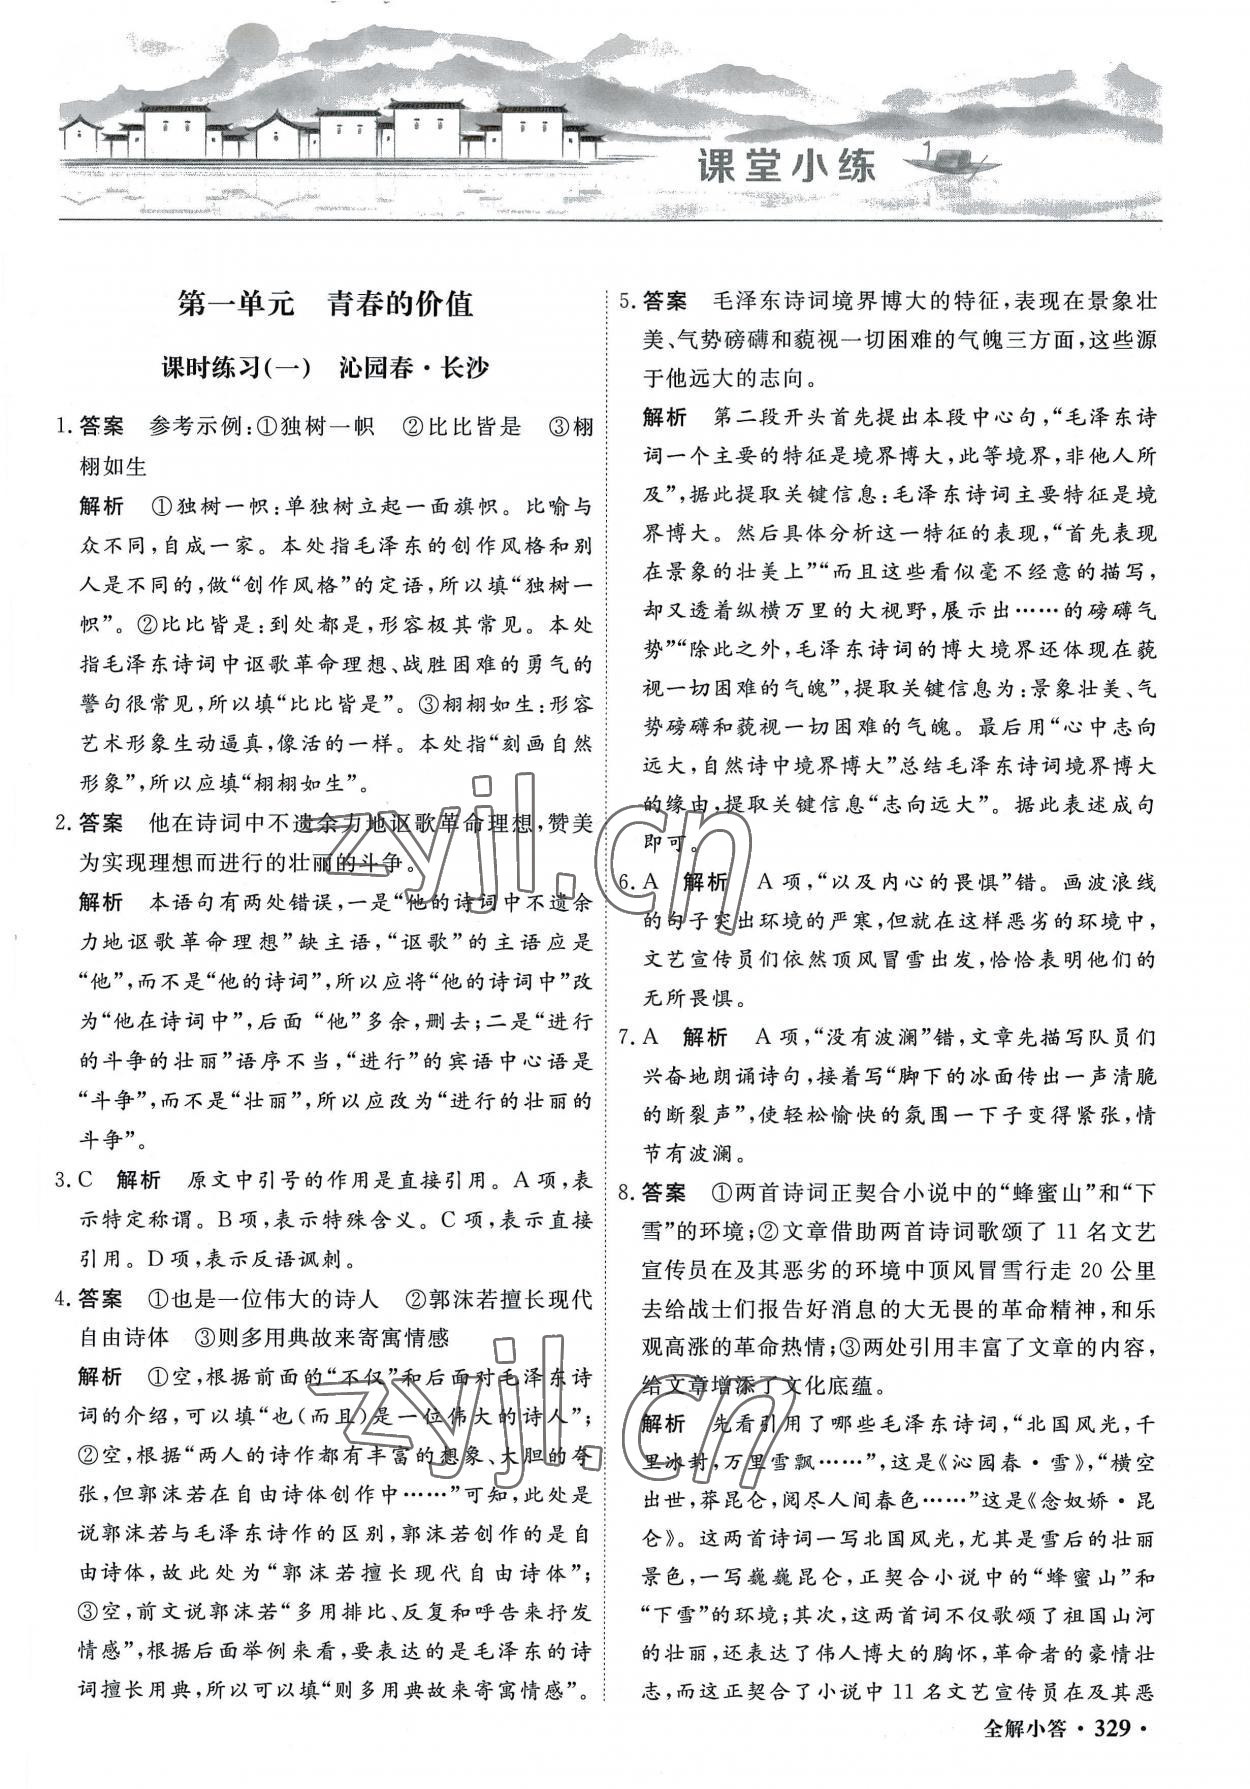 课堂小练
第一单元 青春的价值
课时练习(一) 沁园春·长沙
1. 答案 参考示例:①独树一帜 ②比比皆是 ③栩
栩如生
解析 ①独树一帜:单独树立起一面旗帜。比喻与
众不同,自成一家。本处指毛泽东的创作风格和别
人是不同的,做“创作风格”的定语,所以填“独树一
帜”。②比比皆是:到处都是,形容极其常见。本处
指毛泽东诗词中讴歌革命理想、战胜困难的勇气的
警句很常见,所以填“比比皆是”。③栩栩如生:形容
艺术形象生动逼真,像活的一样。本处指“刻画自然
形象”,所以应填“栩栩如生”。
2. 答案 他在诗词中不遗余力地讴歌革命理想,赞美
为实现理想而进行的壮丽的斗争。
解析 本语句有两处错误,一是“他的诗词中不遗余
力地讴歌革命理想”缺主语,“讴歌”的主语应是
“他”,而不是“他的诗词”,所以应将“他的诗词中”改
为“他在诗词中”,后面“他”多余,删去;二是“进行
的斗争的壮丽”语序不当,“进行”的宾语中心语是
“斗争”,而不是“壮丽”,所以应改为“进行的壮丽的
斗争”。
3. C 解析 原文中引号的作用是直接引用。A项,表
示特定称谓。B项,表示特殊含义。C项,表示直接
引用。D项,表示反语讽刺。
4. 答案 ①也是一位伟大的诗人 ②郭沫若擅长现代
自由诗体 ③则多用典故来寄寓情感
解析 ①空,根据前面的“不仅”和后面对毛泽东诗
词的介绍,可以填“也(而且)是一位伟大的诗人”;
②空,根据“两人的诗作都有丰富的想象、大胆的夸
张,但郭沫若在自由诗体创作中……”可知,此处是
说郭沫若与毛泽东诗作的区别,郭沫若创作的是自
由诗体,故此处为“郭沫若擅长现代自由诗体”;
③空,前文说郭沫若“多用排比、反复和呼告来抒发
情感”,根据后面举例来看,要表达的是毛泽东的诗
词擅长用典,所以可以填“则多用典故来寄寓情感”。
5. 答案 毛泽东诗词境界博大的特征,表现在景象壮
美、气势磅礴和藐视一切困难的气魄三方面,这些源
于他远大的志向。
解析 第二段开头首先提出本段中心句,“毛泽东诗
词一个主要的特征是境界博大,此等境界,非他人所
及”,据此提取关键信息:毛泽东诗词主要特征是境
界博大。然后具体分析这一特征的表现,“首先表现
在景象的壮美上”“而且这些看似毫不经意的描写,
却又透着纵横万里的大视野,展示出……的磅礴气
势”“除此之外,毛泽东诗词的博大境界还体现在藐
视一切困难的气魄”,提取关键信息为:景象壮美、气
势磅礴和藐视一切困难的气魄。最后用“心中志向
远大,自然诗中境界博大”总结毛泽东诗词境界博大
的缘由,提取关键信息“志向远大”。据此表述成句
即可。
6. A 解析 A项,“以及内心的畏惧”错。画波浪线
的句子突出环境的严寒,但就在这样恶劣的环境中,
文艺宣传员们依然顶风冒雪出发,恰恰表明他们的
无所畏惧。
7. A 解析 A项,“没有波澜”错,文章先描写队员们
兴奋地朗诵诗句,接着写“脚下的冰面传出一声清脆
的断裂声”,使轻松愉快的氛围一下子变得紧张,情
节有波澜。
8. 答案 ①两首诗词正契合小说中的“蜂蜜山”和“下
雪”的环境;②文章借助两首诗词歌颂了11名文艺
宣传员在及其恶劣的环境中顶风冒雪行走20公里
去给战士们报告好消息的大无畏的革命精神,和乐
观高涨的革命热情;③两处引用丰富了文章的内容,
给文章增添了文化底蕴。
解析 先看引用了哪些毛泽东诗词,“北国风光,千
里冰封,万里雪飘……”,这是《沁园春·雪》,“横空
出世,莽昆仑,阅尽人间春色……”这是《念奴娇·昆
仑》。这两首诗词一写北国风光,尤其是雪后的壮丽
景色,一写巍巍昆仑,正契合小说中的“蜂蜜山”和
“下雪”的环境;其次,这两首词不仅歌颂了祖国山河
的壮丽,还表达了伟人博大的胸怀,革命者的豪情壮
志,而这正契合了小说中11名文艺宣传员在及其恶
全解小答·329·
zyjl.cn
zyjl.cn